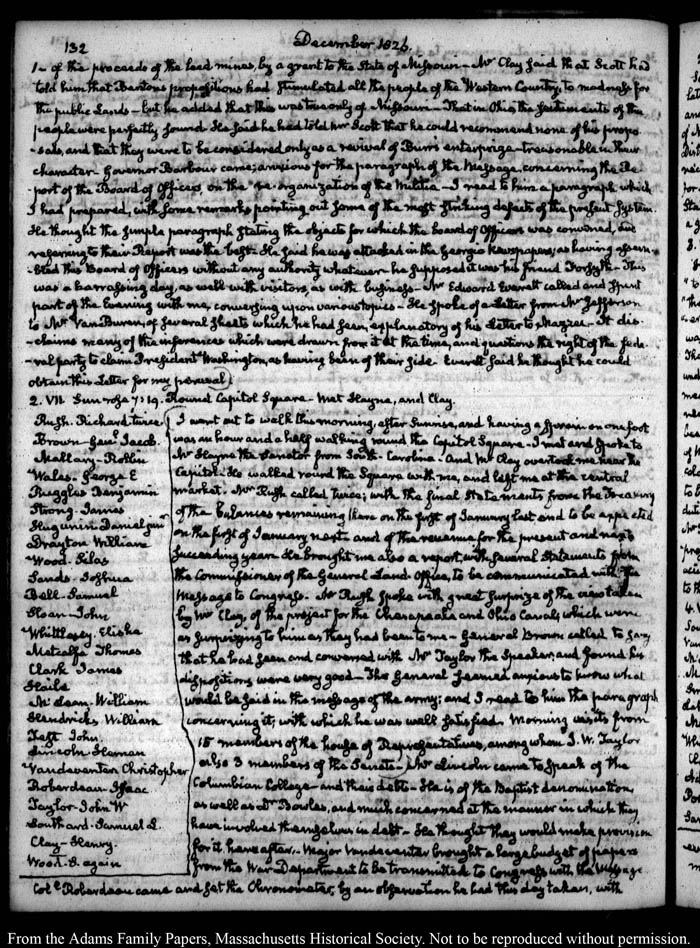 132
December 1826.
1— of the proceeds of the lead mines, by a grant to the State of Missouri— Mr Clay said that Scott had
told him that Bartons propositions had stimulated all the people of the Western Country, to madness for
the public Lands— but he added that this was true only of Missouri— That in Ohio the sentiments of the
people were perfectly sound. He said he had told Mr Scott that he could recommend none of his propo-
-sals, and that they were to be considered only as a revival of Burr's enterprize— treasonable in their
character— Governor Barbour came; anxious for the paragraph of the Message, concerning the Re-
-port of the Board of Officers, on the re-organization of the Militia— I read to him a paragraph which
I had prepared, with some remarks pointing out some of the most striking defects of the present System.
He thought the simple paragraph stating the objects for which the board of Officers was convened, and
referring to their Report was the best. He said he was attacked in the Georgia Newspapers, as having assem-
-bled this Board of Officers without any authority whatever— he supposed it was his friend Forsyth— This
was a harrassing day, as well with visitors, as with business— Mr Edward Everett called and spent
part of the Evening with me, conversing upon various topics— He spoke of a Letter from Mr Jefferson
to Mr Van Buren, of several sheets which he had seen, explanatory of his Letter to Mazzei— It dis-
-claims many of the inferences which were drawn from it at the time, and questions the right of the fede-
-ral party to claim President Washington, as having been of their side. Everett said he thought he could
obtain this Letter for my perusal.
2. VII. Sun rose 7:19. Round Capitol Square— Met Hayne, and Clay.
Rush. Richard twice.
Brown— Genl Jacob.
Mallary— Rollin
Wales— George E
Ruggles Benjamin
Strong— James
Hugunin Daniel junr
Drayton William
Wood. Silas
Sands— Joshua
Bell— Samuel
Sloan— John
Whittlesey. Elisha
Metcalfe Thomas
Clark James
Haile
McLean— William
Hendricks. William
Taft John.
Lincoln Heman
Vandeventer Christopher
Roberdeau— Isaac
Taylor— John W
Southard— Samuel L.
Clay— Henry.
Wood. S. again
I went out to walk this morning, after Sunrise, and having a sprain on one foot
was an hour and a half walking round the Capitol Square— I met and spoke to
Mr Hayne the Senator from South-Carolina— And Mr Clay overtook me near the
Capitol— He walked round the Square with me, and left me at the central
market. Mr Rush called twice; with the final statements from the Treasury
of the balances remaining there on the first of January last and to be expected
on the first of January next— and of the revenue for the present and next
succeeding year. He brought me also a report, with several Statements from
the Commissioner of the General Land Office, to be communicated with the
Message to Congress— Mr Rush spoke with great surprize of the views taken
by Mr Clay, of the project for the Chesapeake and Ohio Canal, which were
as surprizing to him as they had been to me— General Brown called to say
that he had seen and conversed with Mr Taylor the Speaker, and found his
dispositions were very good— The General seemed anxious to know what
would be said in the message of the army; and I read to him the paragraph
concerning it; with which he was well satisfied. Morning visits from
15 members of the house of Representatives, among whom J. W. Taylor
also 3 members of the Senate— Mr Lincoln came to speak of the
Columbian College— and their debts— He is of the Baptist denomination,
as well as Dr Bowles, and much concerned at the manner in which they
have involved themselves in debt— He thought they would make provision
for it hereafter— Major Vandeventer brought a large budget of papers
from the War Department to be transmitted to Congress with the Message
Colo Roberdeau came and set the Chronometer, by an observation he had this day taken, with
From the Adams Family Papers, Massachusetts Historical Society. Not to be reproduced without permission.